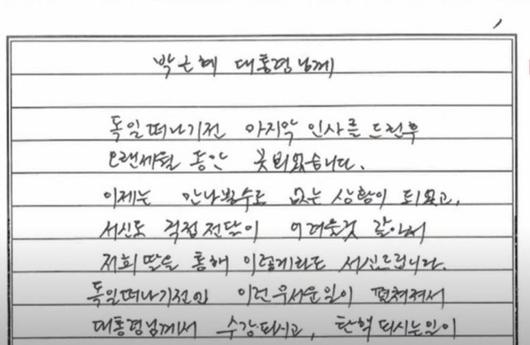 박근혜 대통령님께
독일떠나기전 마지막 인사를 드린후
오랜세월 동안 못뵈었습니다.
이제는 만나뵐수도 없는 상황이 되었고,
서신도 직접전달이 어려울것 같아서
저희 딸을 통해 이렇게라도 서신드립니다.
독일떠나기전엔 이런 무서운일이 펼쳐져서
대통령님께서 수감되시고, 탄핵되시는일이